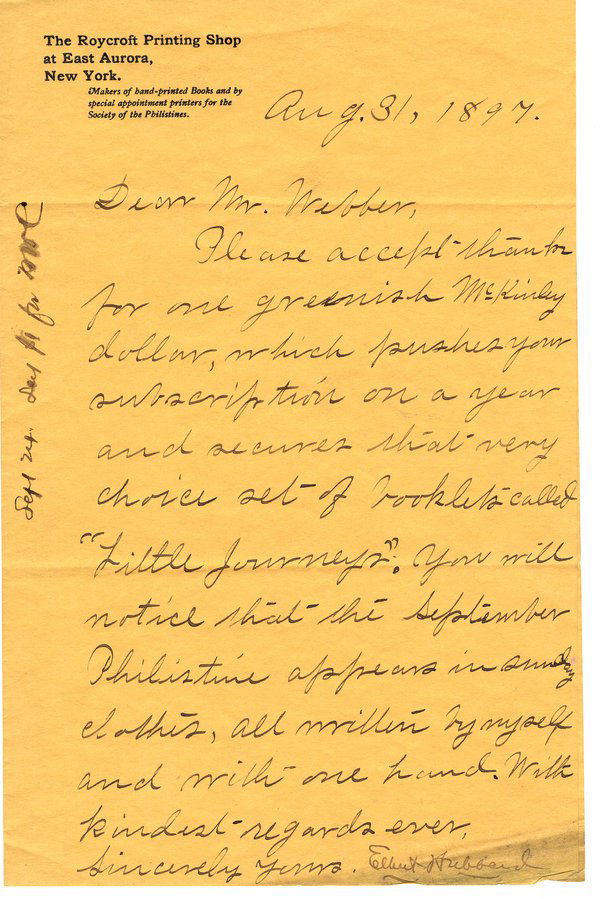 The Roycroft Printing Shop
at East Aurora,
New York.
Makers of hand-printed Books and by
special appointment printers for the
Society of the Philistines.
Aug. 31, 1897.
Dear Mr. Webber,
Please accept thanks
for one greenish McKinley
dollar, which pushes your
subscription on a year
and secures that very
choice set of booklets called
"Little Journeys". You will
notice that the September
Philistine appears in sunday
clothes, all written by myself
and with one hand. With
kindest regards ever,
sincerely yours. Elbert Hubbard
Sept 24.